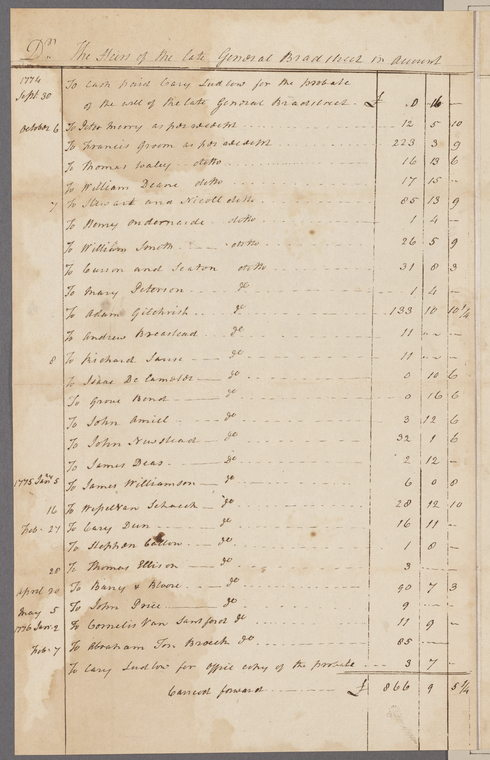 Dr. The Heirs of the late General Bradstreet in Account
1774 Sept. 30 To Cash paid Cary Ludlow for the probate
of the will of the late General Bradstreet - £ .0 16 -
October 6 To Peter Merry as per 12 5 10
To Francis Groom as per 223 3 9
To Thomas ditto 16 13 6
To William Deane ditto 17 15 -
7 To Stewart and Nicoll ditto 85 13 9
To Henry ditto 1 4 -
To William Smith ditto 26 5 9
To Curson and Seaton ditto 31 8 3
To Mary Peterson do 1 4 -
To Adam Gilchrist do 133 10 10 1/4
To Andrew Breastead do 11 - -
8 To Richard do 11 - -
To Isaac do 0 10 6
To Grove Bend do 0 16 6
To John Amiel do 3 12 6
To John Newstead do 32 1 6
To James Deas do 2 12 -
1775 Jany 5 To James Williamson do 6 0 8
16 To Wessel Van Schaick do 28 12 10
Feb. 27 To Cary Dun do 16 11 -
To Stephen do 1 8 -
28 To Thomas Ellison do 3
April 20 To do 90 7 3
May 5 To John Price do 9 -
1776 Jan. 2 To Cornelis Van Santford do 11 9 -
Feb. 7 To Abraham Ten Broeck do 85
To Cary Ludlow for Office copy of the probate 3 7 -
Carried forward £ 866 9 5 1/4